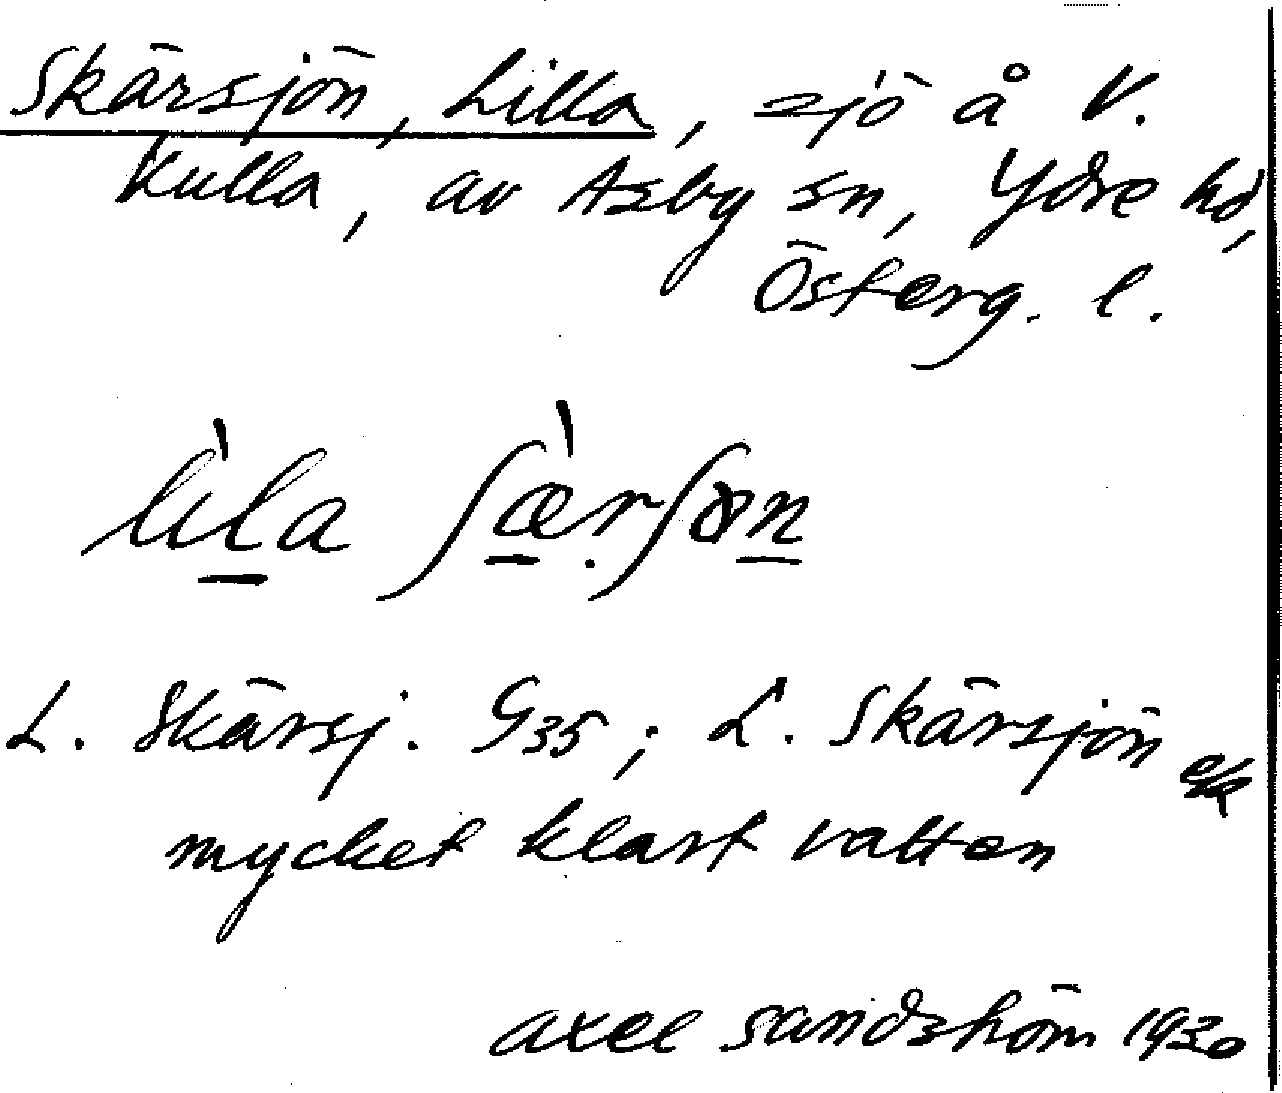 Skärsjön, Lilla, sjö å V.
Kulla, av Asby sn, Ydre hd,
Österg. l.
lìla ʃæ̀rʃøn
L. Skärsj. G35; L. Skärsjön e/k
mycket klart vatten
axel sandström 1930